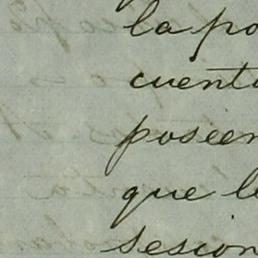 la po
cuenta
poseen
que l
sescion